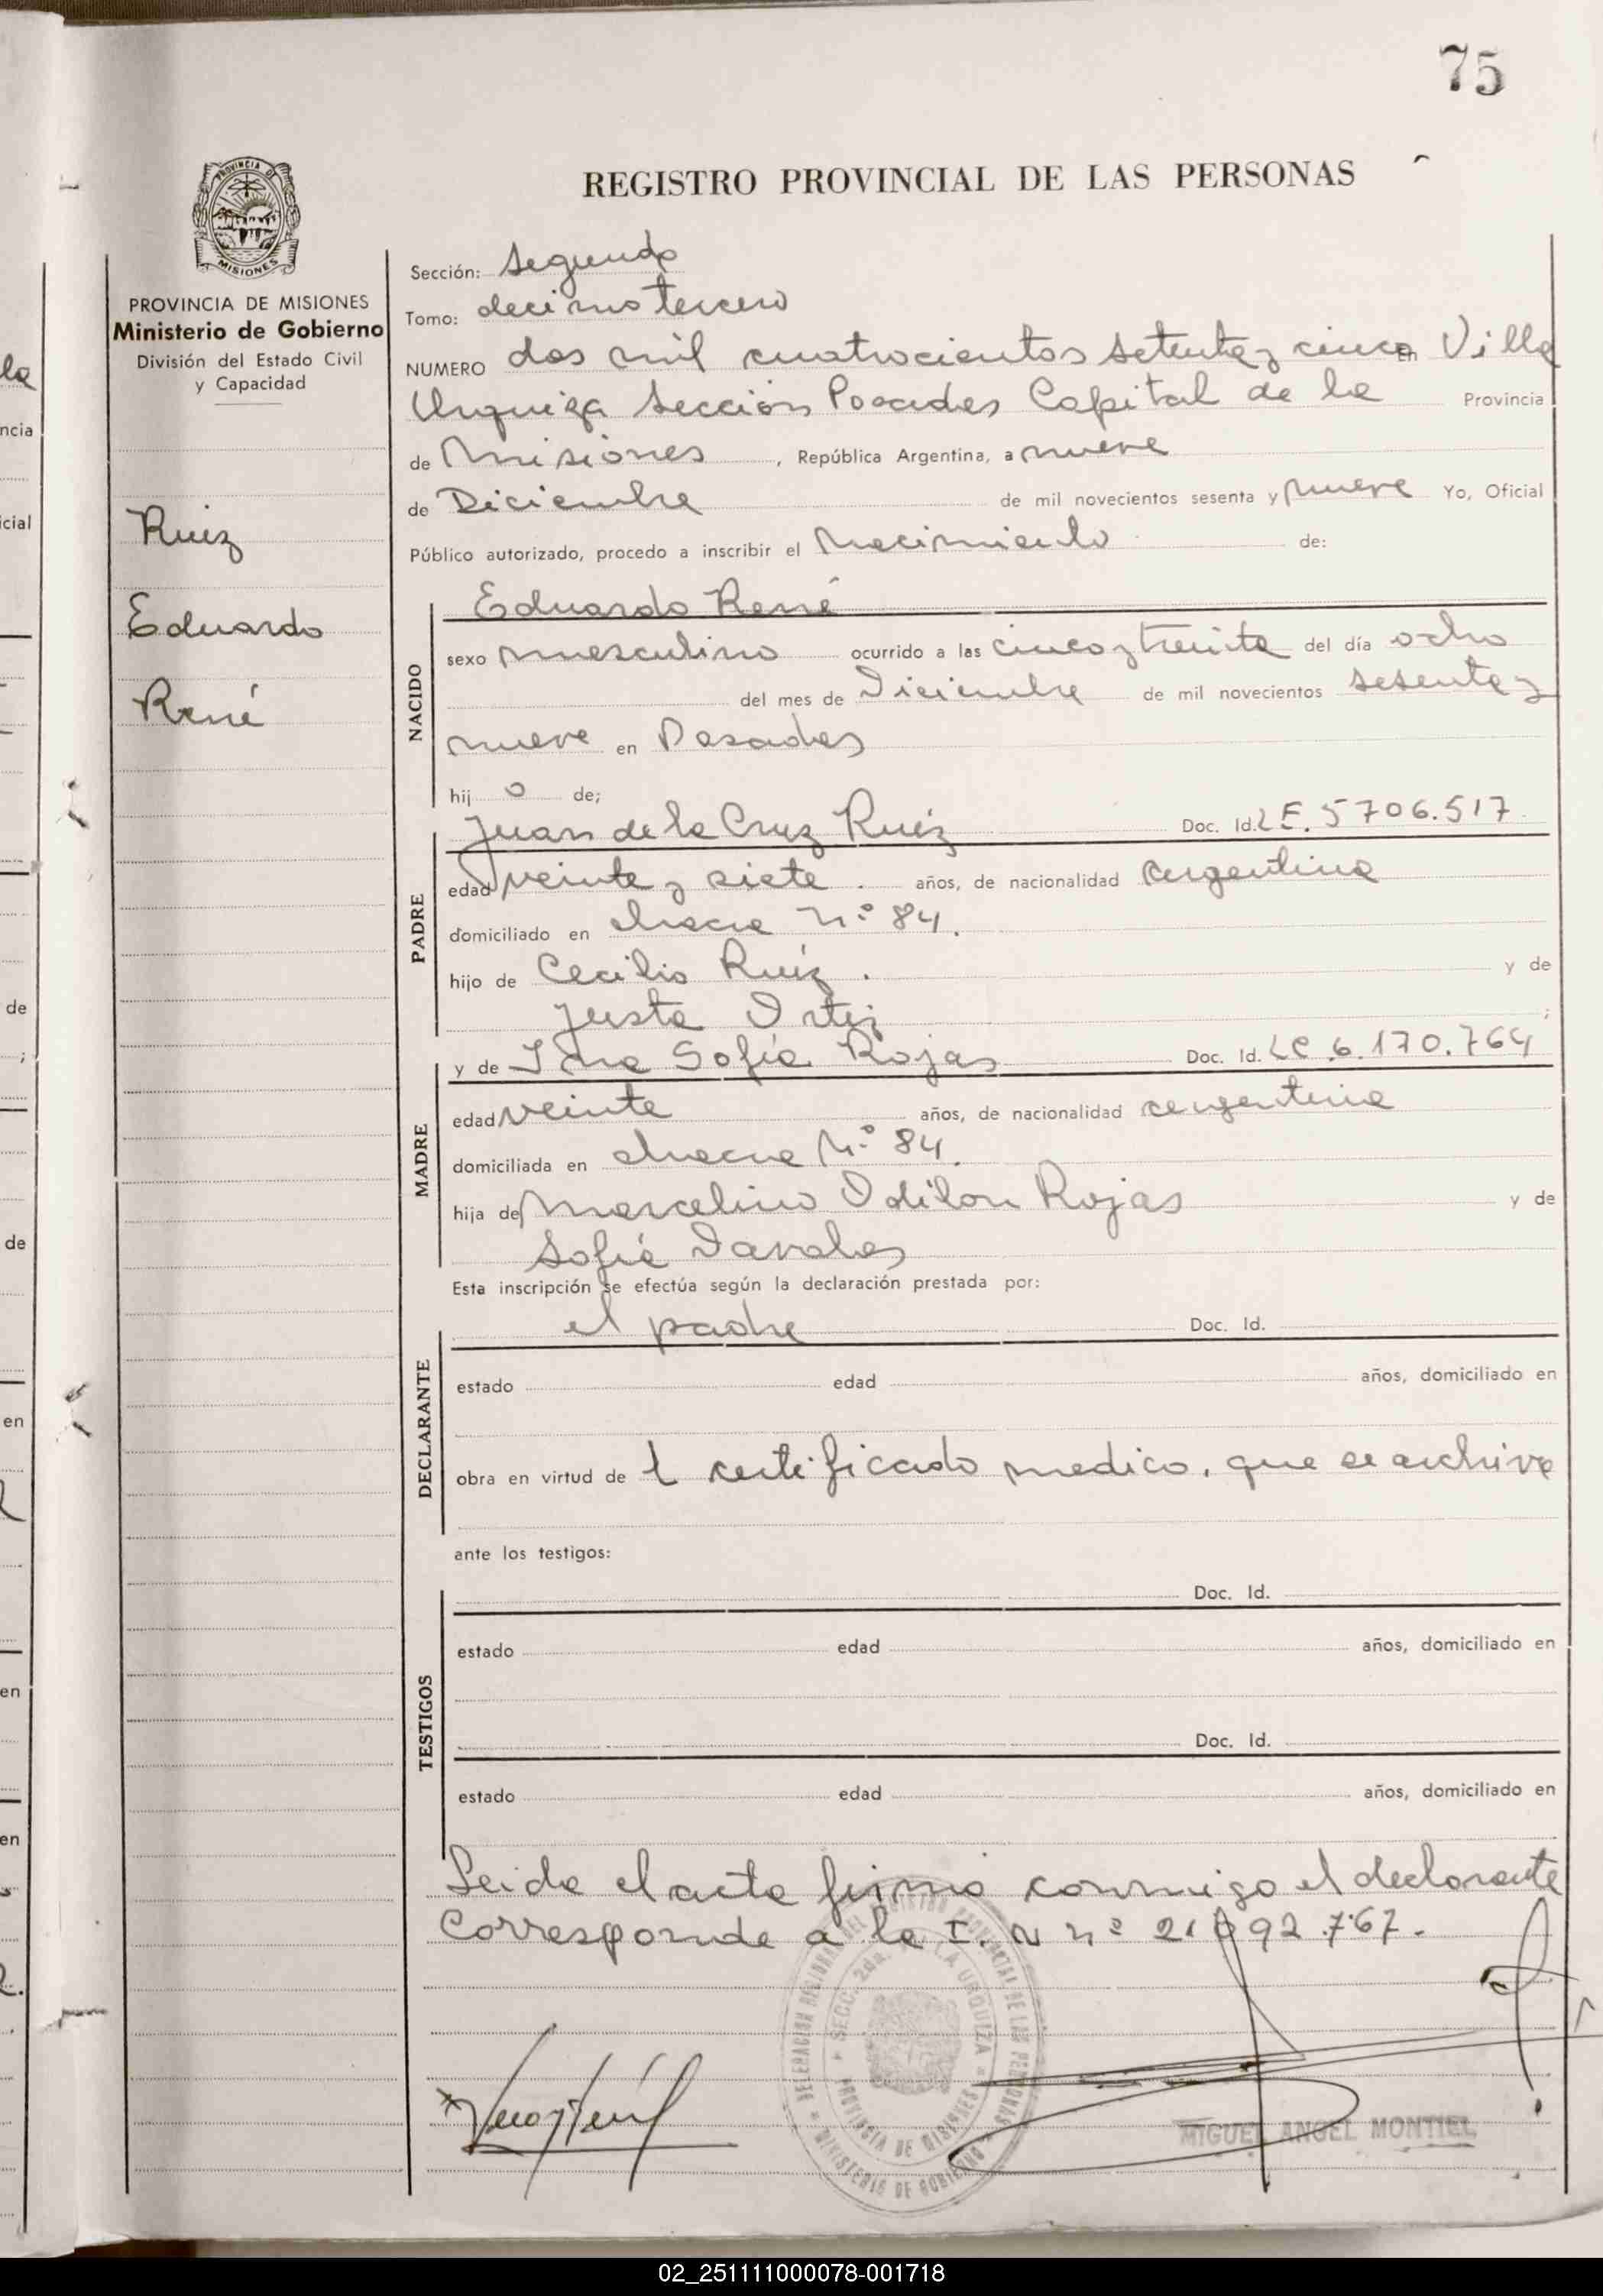 75
REGISTRO PROVINCIAL DE LAS PERSONAS
PROVINCIA DE MISIONES
MISIONES
PROVINCIA DE MISIONES
Ministerio de Gobierno
División del Estado Civil
y Capacidad
Ruiz
Eduardo
René
Sección: Segunda
Tomo: decimo tercero
NUMERO dos mil cuatrocientos setenta y cinco En Villa
Urquiza Sección Posadas Capital de la Provincia
de Misiones, República Argentina, a nueve
de Diciembre de mil novecientos sesenta y nueve Yo, Oficial
Público autorizado, procedo a inscribir el nacimiento de:
NACIDO
Eduardo René
sexo masculino ocurrido a las cinco y treinta del día ocho
del mes de Diciembre de mil novecientos sesenta y
nueve en Posadas
hij o de;
PADRE
Juan de la Cruz Ruiz Doc. Id. LE. 5706.517
edad veinte y siete. años, de nacionalidad argentina
domiciliado en chacra N.º 84.
hijo de Cecilio Ruiz. y de
Justa Ortiz ;
MADRE
y de Sofía Rojas Doc. Id. LC 6.170.764
edad veinte años, de nacionalidad argentina
domiciliada en chacra N.º 84.
hija de Marcelino Odilon Rojas y de
Sofía
Esta inscripción se efectúa según la declaración prestada por:
DECLARANTE
el padre Doc. Id.
estado edad años, domiciliado en
obra en virtud de l certificado medico, que se archiva
ante los testigos:
TESTIGOS
Doc. Id.
estado edad años, domiciliado en
Doc. Id.
estado edad años, domiciliado en
Leida el acta firma conmigo el declarante
Corresponde a la I. N nº 21.092.767.
DELEGACION REGIONAL DEL REGISTRO PROVINCIAL DE LAS PERSONAS
SECC. 2da. VILLA URQUIZA
PROVINCIA DE MISIONES
MINISTERIO DE GOBIERNO
MIGUEL ANGEL MONTIEL
02_251111000078-001718